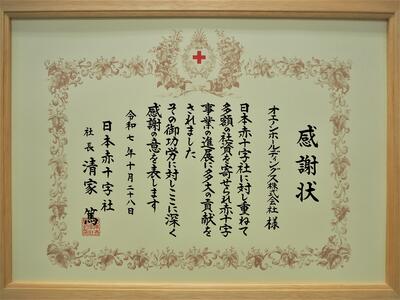 感謝状
オーエンホールディングス株式会社 様
日本赤十字社に対し重ねて
多額の社資を寄せられ赤十字
事業の進展に多大の貢献を
されました
その御功労に対しここに深く
感謝の意を表します
令和七年十月二十八日
日本赤十字社
社長 清家 篤